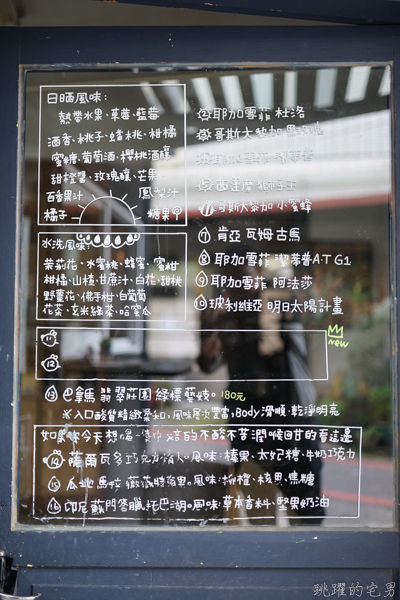 日晒風味：
熱帶水果、草莓、藍莓
酒香、桃子、蜂桃、柑橘
蜜糖、葡萄酒、櫻桃酒釀
甜橙醬、玫瑰釀、芒果
百香果汁 鳳梨汁
橘子 糖果
水洗風味：
茉莉花、水蜜桃、蜂蜜、蜜柑
柑橘、山楂、甘蔗汁、白花、甜桃
野薑花、佛手柑、白葡萄
花茶、玄米綠茶、哈蜜瓜
耶加雪菲 杜洛
哥斯大黎加
耶加雪菲
西達摩
哥斯大黎加 小蜜蜂
⑦ 肯亞 瓦姆古馬
⑧ 耶加雪菲 潔蒂普A.T G1
⑨ 耶加雪菲 阿法莎
⑩ 玻利維亞 明日太陽計畫
⑪
new
⑫
⑬ 巴拿馬 翡翠莊園 綠標藝妓。180元
※入口酸質精緻柔和，風味層次豐富，Body滑順、乾淨明亮
如果你今天想喝一支中焙的不酸不苦潤喉回甘的看這邊
⑭ 薩爾瓦多巧克力情人。風味：榛果、太妃糖、牛奶巧克力
⑮ 瓜地馬拉 薇薇特南果。風味：柳橙、核果、焦糖
⑯ 印尼蘇門答臘托巴湖。風味：草本香料、堅果奶油
跳躍的宅男